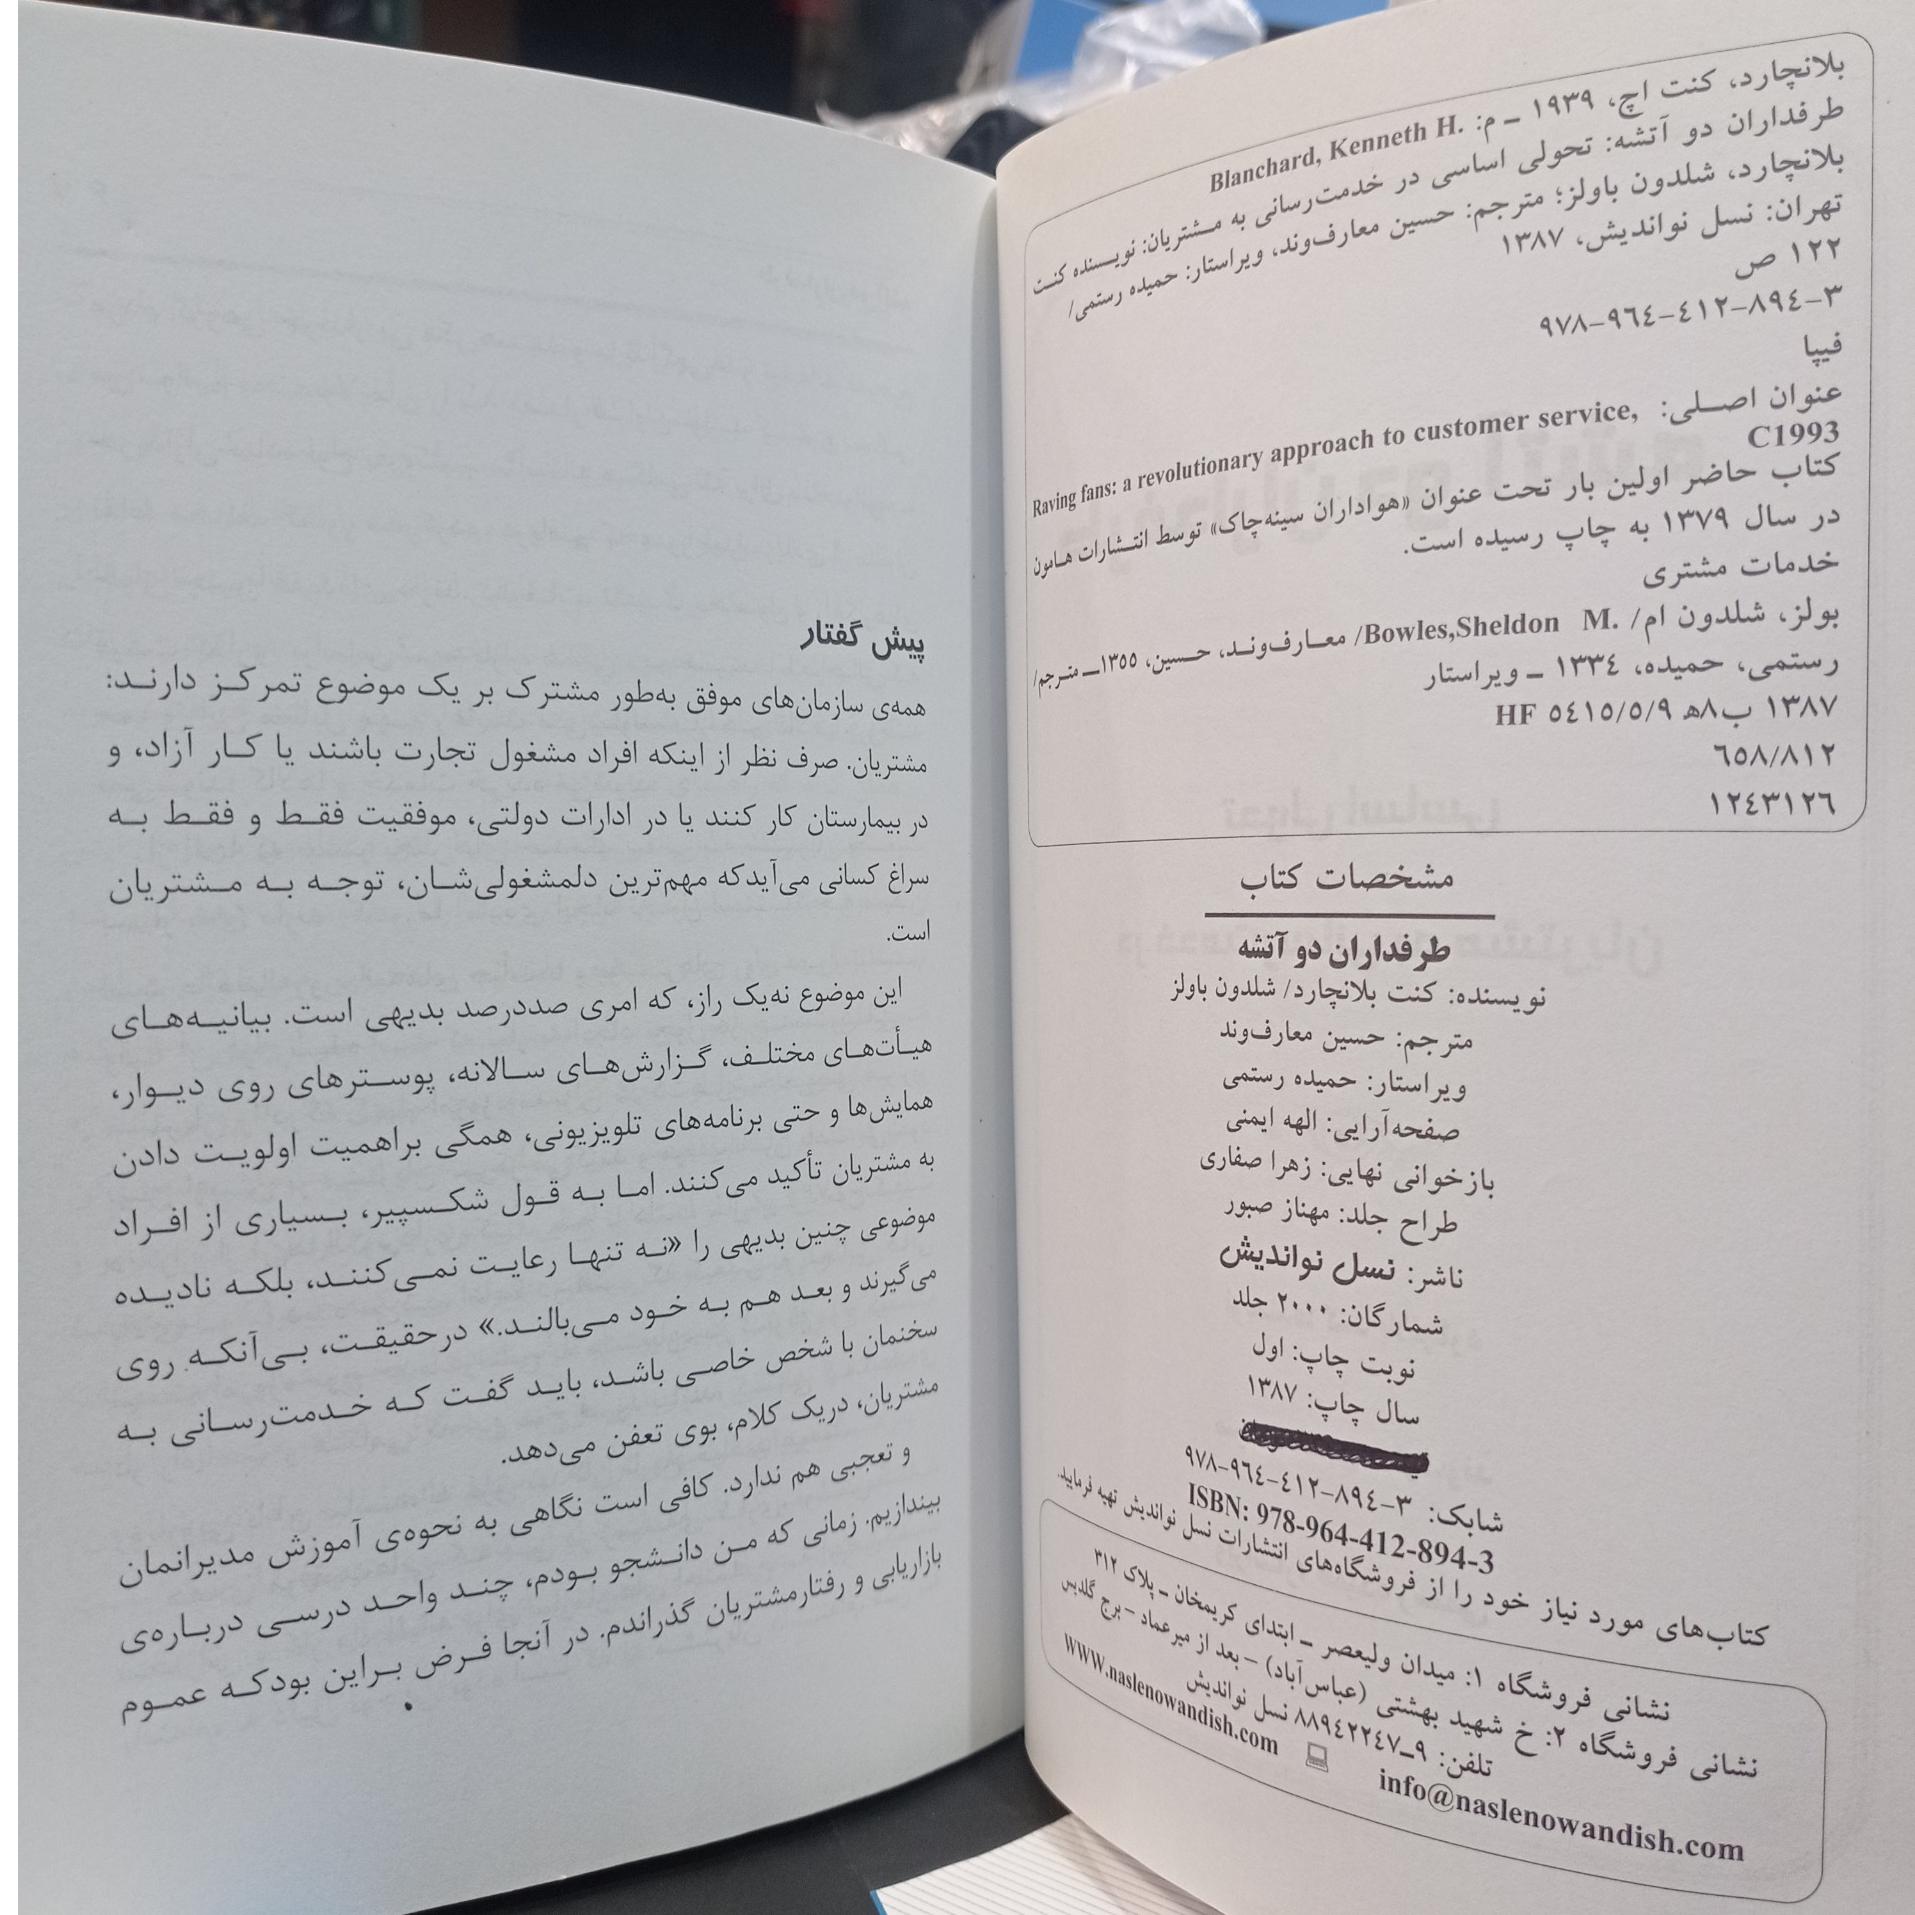 بلانچارد، کنت اچ، ۱۹۳۹ ـ م: Blanchard, Kenneth H.
طرفداران دو آتشه: تحولی اساسی در خدمت‌رسانی به مشتریان: نویسنده کنت
بلانچارد، شلدون باولز؛ مترجم: حسین معارف‌وند، ویراستار: حمیده رستمی/
تهران: نسل نواندیش، ۱۳۸۷
۱۲۲ ص
۹۷۸-۹٦٤-٤۱۲-۸۹٤-۳
فیپا
عنوان اصلی: Raving fans: a revolutionary approach to customer service,
C1993
کتاب حاضر اولین بار تحت عنوان «هواداران سینه‌چاک» توسط انتشارات هامون
در سال ۱۳۷۹ به چاپ رسیده است.
خدمات مشتری
بولز، شلدون ام/ Bowles,Sheldon M./ معارف‌وند، حسین، ۱۳٥٥ـ مترجم/
رستمی، حمیده، ۱۳۳٤ ـ ویراستار
۱۳۸۷ ب۸ه‍ HF ٥٤۱٥/٥/۹
٦٥۸/۸۱۲
۱۲٤۳۱۲٦
مشخصات کتاب
طرفداران دو آتشه
نویسنده: کنت بلانچارد/ شلدون باولز
مترجم: حسین معارف‌وند
ویراستار: حمیده رستمی
صفحه‌آرایی: الهه ایمنی
بازخوانی نهایی: زهرا صفاری
طراح جلد: مهناز صبور
ناشر: نسل نواندیش
شمارگان: ۲۰۰۰ جلد
نوبت چاپ: اول
سال چاپ: ۱۳۸۷
شابک: ۹۷۸-۹٦٤-٤۱۲-۸۹٤-۳
ISBN: 978-964-412-894-3
کتاب‌های مورد نیاز خود را از فروشگاه‌های انتشارات نسل نواندیش تهیه فرمایید.
نشانی فروشگاه ۱: میدان ولیعصر ـ ابتدای کریمخان ـ پلاک ۳۱۲
نشانی فروشگاه ۲: خ شهید بهشتی (عباس‌آباد) – بعد از میرعماد – برج گلدیس
تلفن: ۹ـ۸۸۹٤۲۲٤۷ نسل نواندیش
WWW.naslenowandish.com
info@naslenowandish.com
پیش گفتار
همه‌ی سازمان‌های موفق به‌طور مشترک بر یک موضوع تمرکز دارند:
مشتریان. صرف نظر از اینکه افراد مشغول تجارت باشند یا کار آزاد، و
در بیمارستان کار کنند یا در ادارات دولتی، موفقیت فقط و فقط به
سراغ کسانی می‌آیدکه مهم‌ترین دلمشغولی‌شان، توجه به مشتریان
است.
این موضوع نه‌یک راز، که امری صددرصد بدیهی است. بیانیه‌های
هیأت‌های مختلف، گزارش‌های سالانه، پوسترهای روی دیوار،
همایش‌ها و حتی برنامه‌های تلویزیونی، همگی براهمیت اولویت دادن
به مشتریان تأکید می‌کنند. اما به قول شکسپیر، بسیاری از افراد
موضوعی چنین بدیهی را «نه تنها رعایت نمی‌کنند، بلکه نادیده
می‌گیرند و بعد هم به خود می‌بالند.» درحقیقت، بی‌آنکه روی
سخنمان با شخص خاصی باشد، باید گفت که خدمت‌رسانی به
مشتریان، دریک کلام، بوی تعفن می‌دهد.
و تعجبی هم ندارد. کافی است نگاهی به نحوه‌ی آموزش مدیرانمان
بیندازیم. زمانی که من دانشجو بودم، چند واحد درسی درباره‌ی
بازاریابی و رفتارمشتریان گذراندم. در آنجا فرض براین بودکه عموم